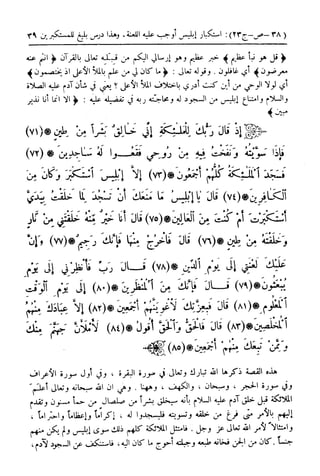 (٣٨-ص-ج٢٣): استكبار إبليس أوجب عليه اللعنة، وهذا درس بليغ للمستكبرين ٣٩
﴿ قل هو نبأ عظيم ﴾ خبر عظيم وهو إرسالي اليكم من قبله تعالى بالقرآن ﴿ انتم عنه
معرضون ﴾ أي غافلون . وقوله تعالى : ﴿ ما كان لي من علم بالملأ الأعلى اذ يختصمون ﴾
أي لولا الوحي من أين كنت أدري باختلاف الملأ الأعلى ؟ يعني في شأن آدم عليه الصلاة
والسلام وامتناع إبليس من السجود له ومحاجته ربه في تفضيله عليه : ﴿ الا انما أنا نذير
مبين ﴾
إِذْ قَالَ رَبُّكَ لِلْمَلَـٰٓئِكَةِ إِنِّى خَـٰلِقٌۢ بَشَرًا مِّن طِينٍ ﴿٧١﴾
فَإِذَا سَوَّيْتُهُۥ وَنَفَخْتُ فِيهِ مِن رُّوحِى فَقَعُوا۟ لَهُۥ سَـٰجِدِينَ ﴿٧٢﴾
فَسَجَدَ ٱلْمَلَـٰٓئِكَةُ كُلُّهُمْ أَجْمَعُونَ ﴿٧٣﴾ إِلَّآ إِبْلِيسَ ٱسْتَكْبَرَ وَكَانَ مِنَ
ٱلْكَـٰفِرِينَ ﴿٧٤﴾ قَالَ يَـٰٓإِبْلِيسُ مَا مَنَعَكَ أَن تَسْجُدَ لِمَا خَلَقْتُ بِيَدَىَّ
أَسْتَكْبَرْتَ أَمْ كُنتَ مِنَ ٱلْعَالِينَ ﴿٧٥﴾ قَالَ أَنَا۠ خَيْرٌ مِّنْهُ خَلَقْتَنِى مِن نَّارٍ
وَخَلَقْتَهُۥ مِن طِينٍ ﴿٧٦﴾ قَالَ فَٱخْرُجْ مِنْهَا فَإِنَّكَ رَجِيمٌ ﴿٧٧﴾ وَإِنَّ
عَلَيْكَ لَعْنَتِىٓ إِلَىٰ يَوْمِ ٱلدِّينِ ﴿٧٨﴾ قَالَ رَبِّ فَأَنظِرْنِىٓ إِلَىٰ يَوْمِ
يُبْعَثُونَ ﴿٧٩﴾ قَالَ فَإِنَّكَ مِنَ ٱلْمُنظَرِينَ ﴿٨٠﴾ إِلَىٰ يَوْمِ ٱلْوَقْتِ
ٱلْمَعْلُومِ ﴿٨١﴾ قَالَ فَبِعِزَّتِكَ لَأُغْوِيَنَّهُمْ أَجْمَعِينَ ﴿٨٢﴾ إِلَّا عِبَادَكَ مِنْهُمُ
ٱلْمُخْلَصِينَ ﴿٨٣﴾ قَالَ فَٱلْحَقُّ وَٱلْحَقَّ أَقُولُ ﴿٨٤﴾ لَأَمْلَأَنَّ جَهَنَّمَ مِنكَ
وَمِمَّن تَبِعَكَ مِنْهُمْ أَجْمَعِينَ ﴿٨٥﴾
هذه القصة ذكرها الله تبارك وتعالى في سورة البقرة ، وفي أول سورة الأعراف
وفي سورة الحجر ، وسبحان ، والكهف ، وههنا . وهي ان الله سبحانه وتعالى أعلم
الملائكة قبل خلق آدم عليه السلام بأنه سيخلق بشراً من صلصال من حمأ مسنون وتقدم
إليهم بالأمر متى فرغ من خلقه وتسويته فليسجدوا له ، إكراماً وإعظاماً واحتراماً ،
وامتثالاً لأمر الله تعالى عز وجل . فامتثل الملائكة كلهم ذلك سوى إبليس ولم يكن منهم
جنساً . كان من الجن فخانه طبعه وجبلته أحوج ما كان اليه ، فاستنكف عن السجود لآدم،